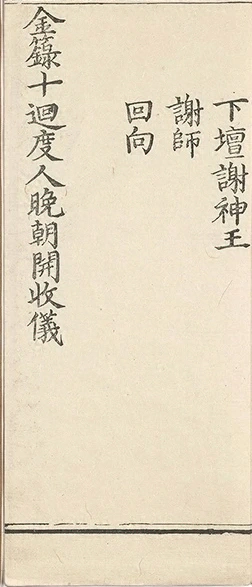 下壇謝神王
謝師
回向
金籙十迴度人晚朝開收儀